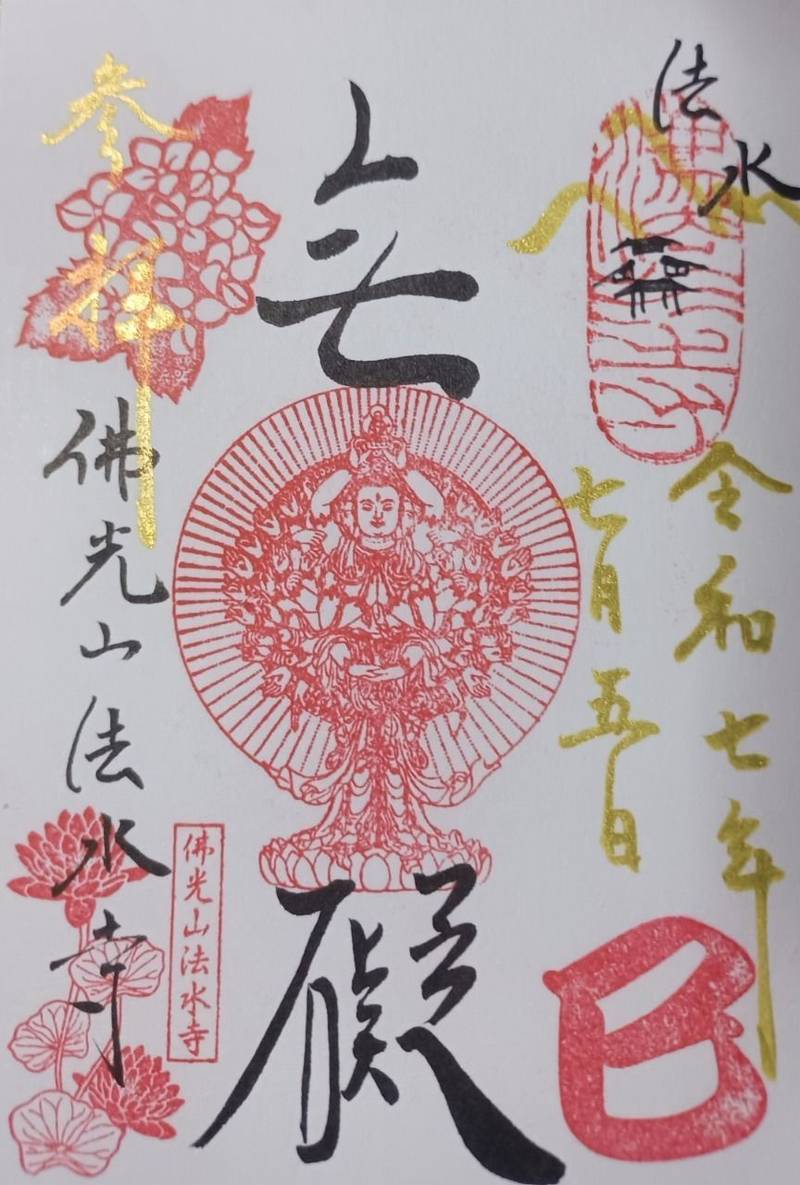 法水
令和七年
七月五日
巳
無礙
参拝
佛光山法水寺
佛光山法水寺